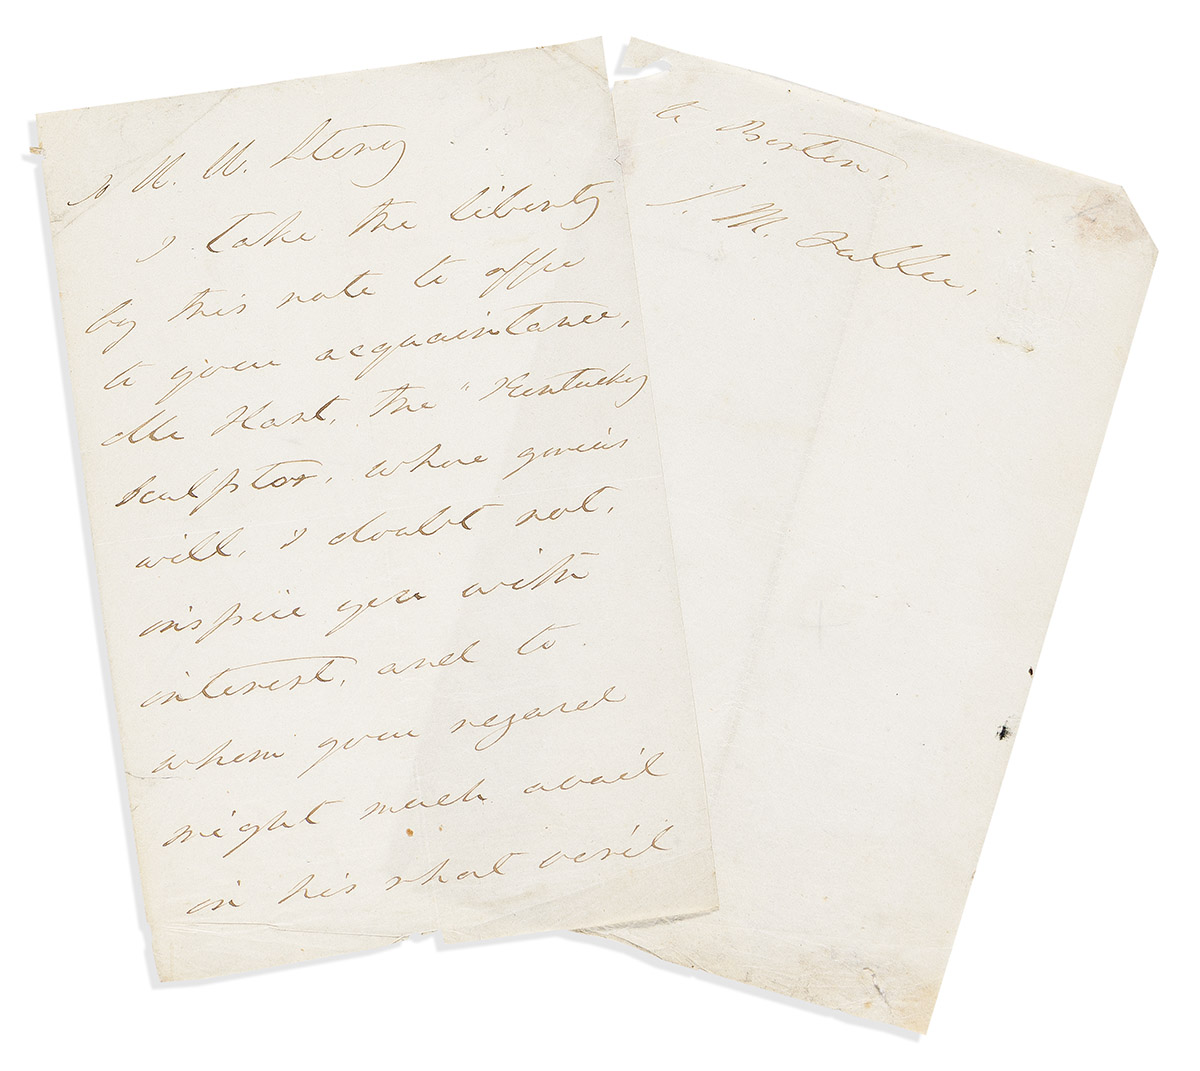 To W. W. Story
I take the liberty
by this note to offer
to your acquaintance,
Mr Hart, the "Kentucky
sculptor, whose genius
will, I doubt not,
inspire you with
interest, and to
whom your regard
might much avail
in his short visit
to Boston,
S. M. Fuller,